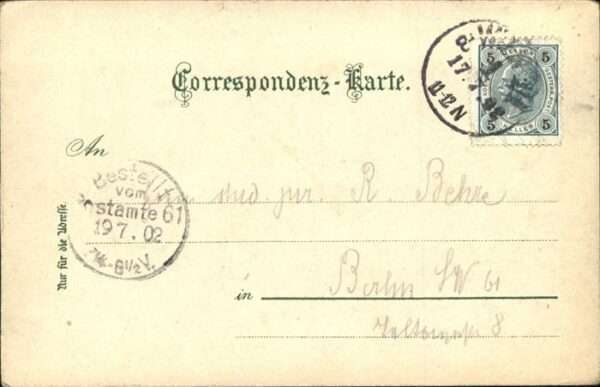 Correspondenz-Karte.
5 5
17.7.02
11-12 N
5 HELLER 5
An
Bestellt
vom
Postamte 61
19 7. 02
7¼-8½ V.
stud. jur. R. Behre
Nur für die Adresse.
in Berlin SW 61
8